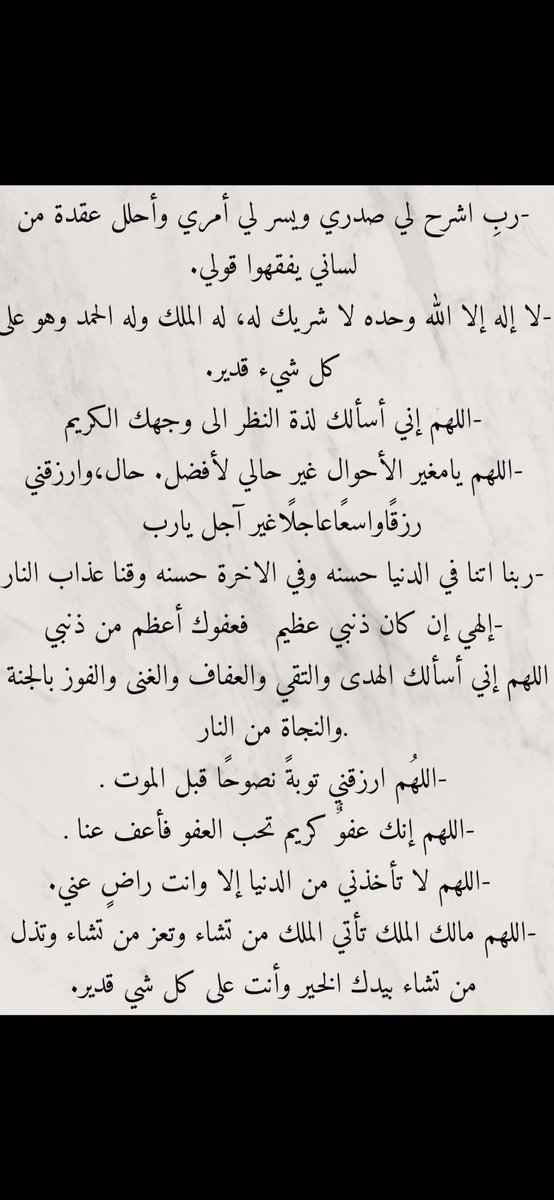 -ربِ اشرح لي صدري ويسر لي أمري وأحلل عقدة من
لساني يفقهوا قولي.
-لا إله إلا الله وحده لا شريك له، له الملك وله الحمد وهو على
كل شيء قدير.
-اللهم إني أسألك لذة النظر الى وجهك الكريم
-اللهم يامغير الأحوال غير حالي لأفضل. حال،وارزقني
رزقًاواسعًاعاجلًاغير آجل يارب
-ربنا اتنا في الدنيا حسنه وفي الاخرة حسنه وقنا عذاب النار
-إلهي إن كان ذنبي عظيم فعفوك أعظم من ذنبي
اللهم إني أسألك الهدى والتقي والعفاف والغنى والفوز بالجنة
والنجاة من النار.
-اللهُم ارزقني توبةً نصوحًا قبل الموت .
-اللهم إنك عفوٌ كريم تحب العفو فأعف عنا .
-اللهم لا تأخذني من الدنيا إلا وانت راضٍ عني.
-اللهم مالك الملك تأتي الملك من تشاء وتعز من تشاء وتذل
من تشاء بيدك الخير وأنت على كل شي قدير.